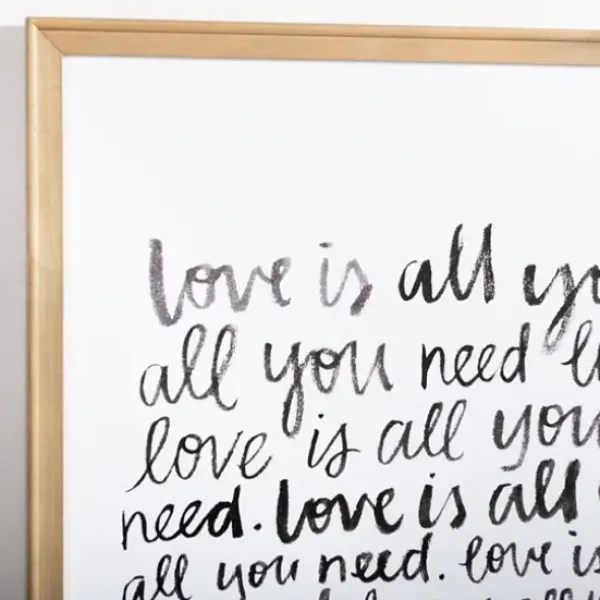 love is all
all you need
love is all you
need. love is all
all you need. love is